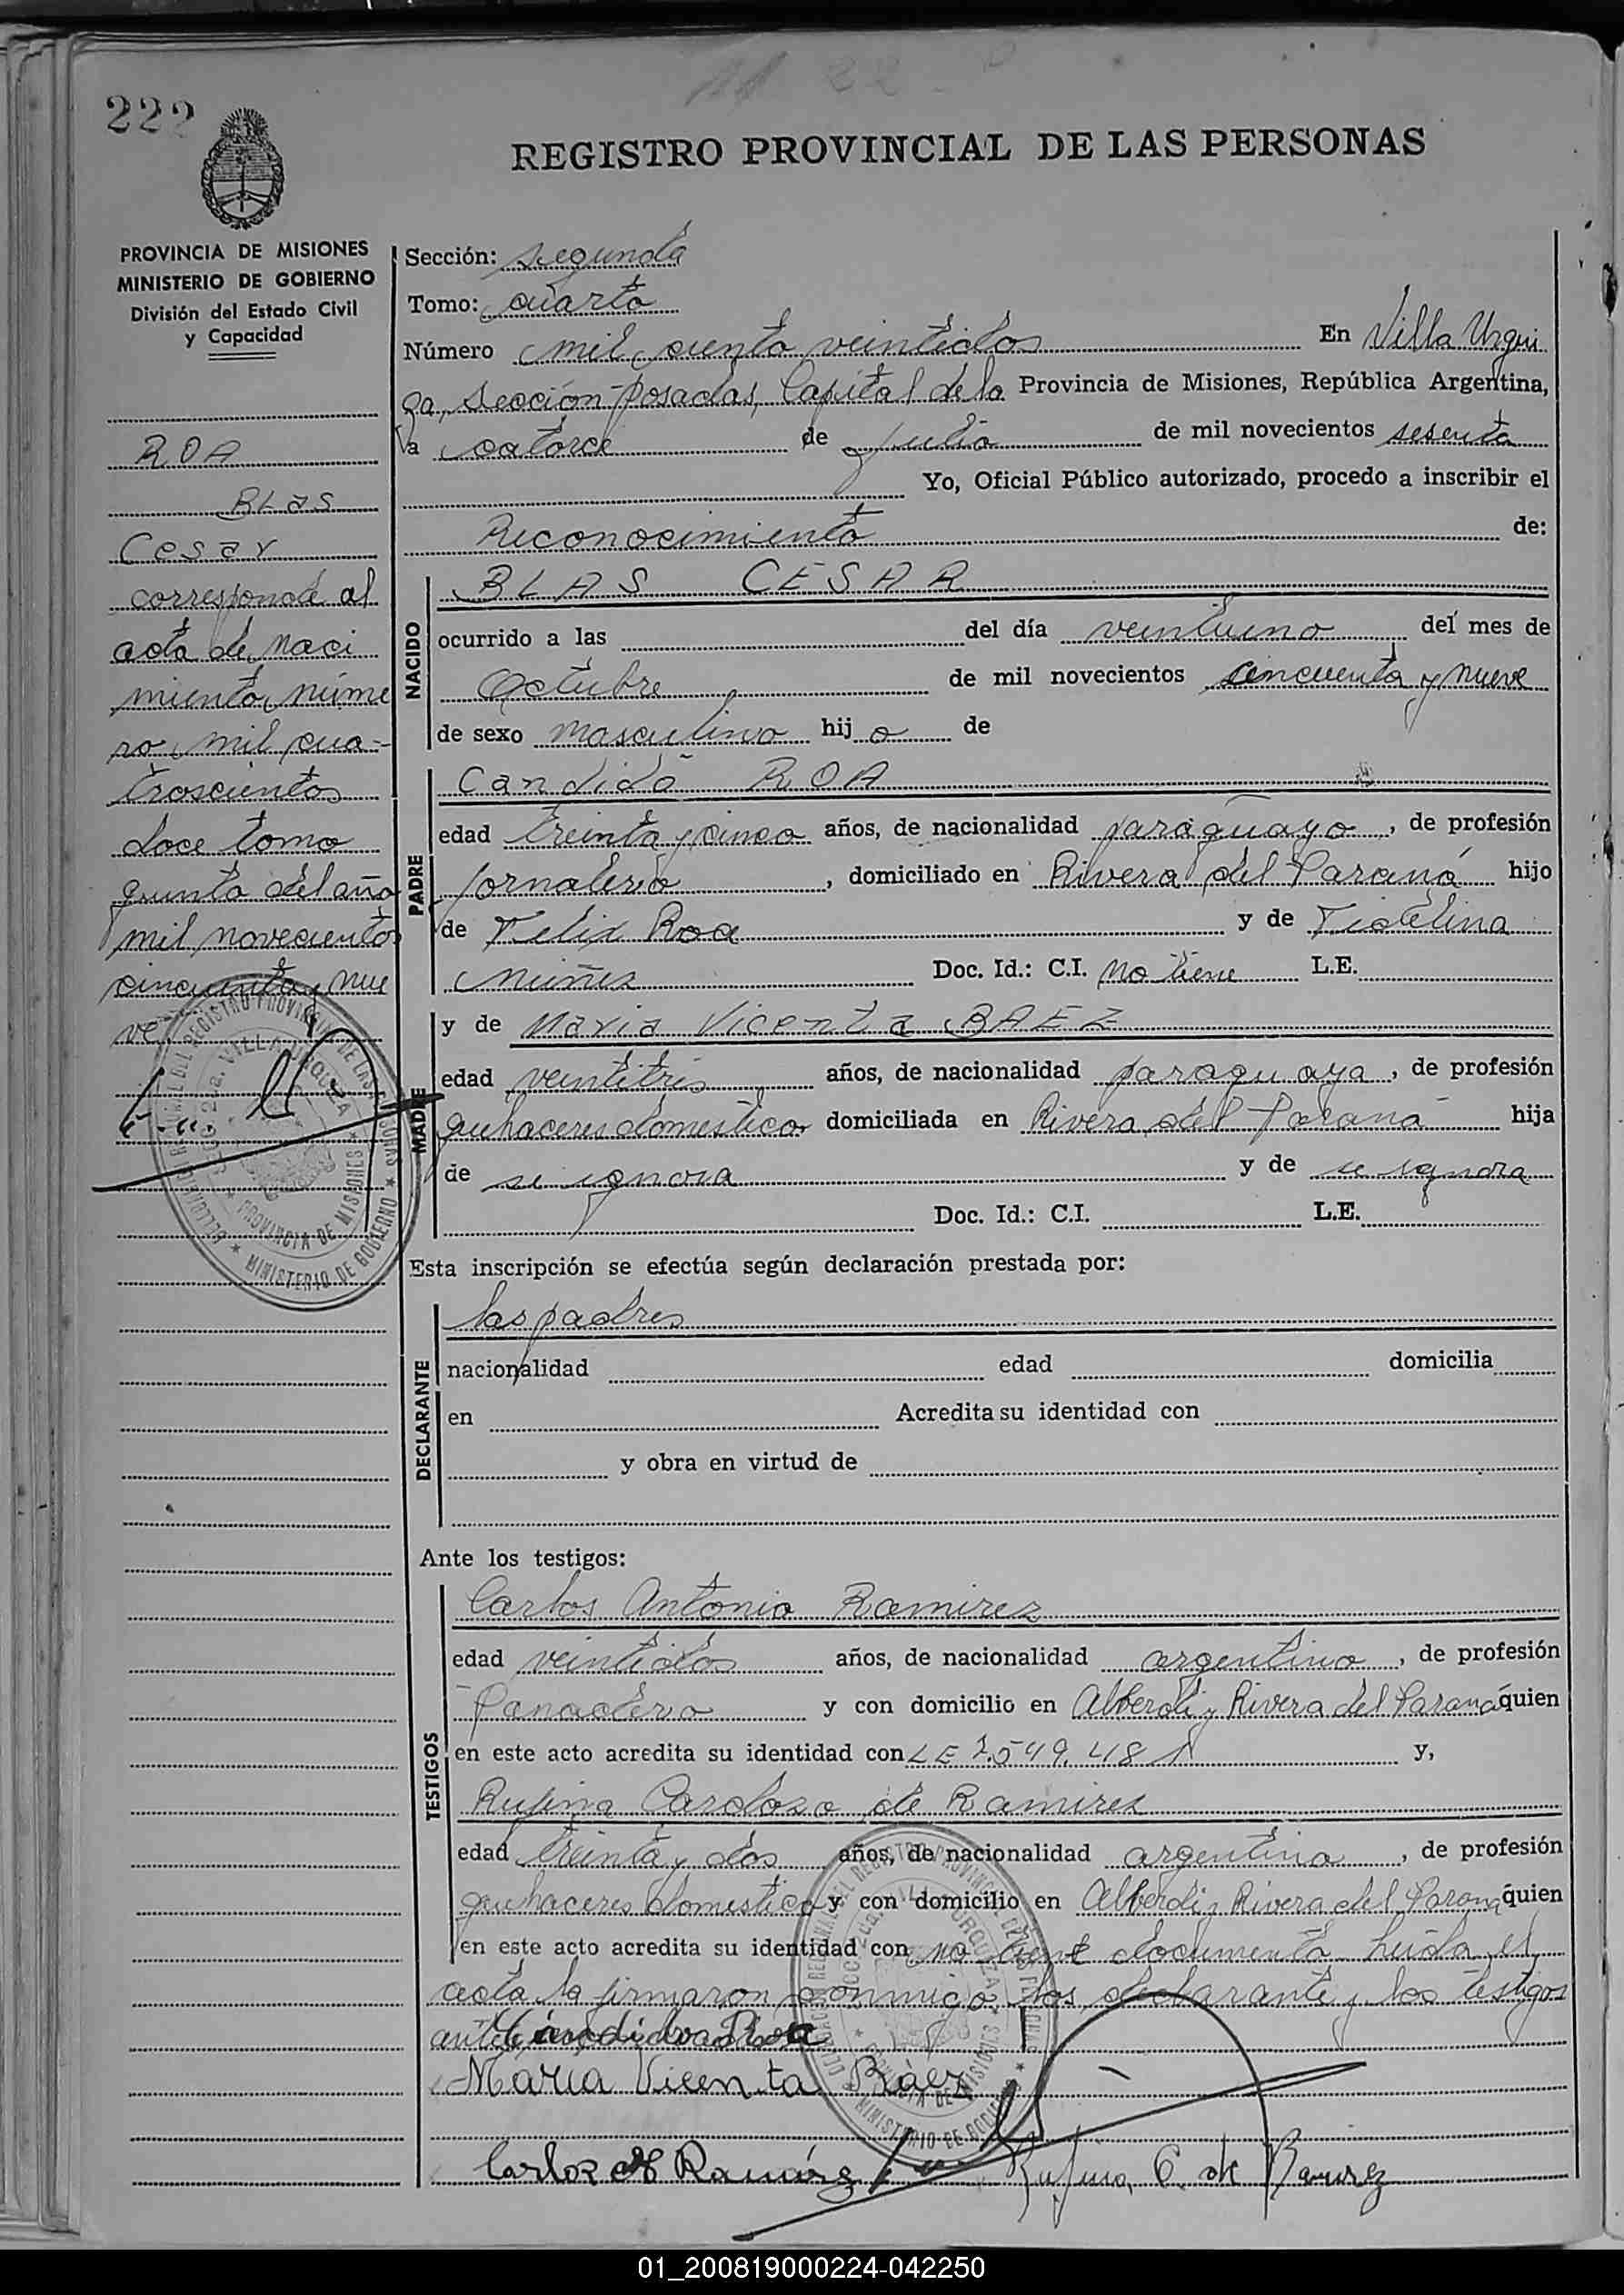 222
REGISTRO PROVINCIAL DE LAS PERSONAS
PROVINCIA DE MISIONES
MINISTERIO DE GOBIERNO
División del Estado Civil
y Capacidad
ROA
BLas
Cesar
corresponde al
acta de naci
miento núme
ro mil cua-
troscientos
doce tomo
quinto del año
mil novecientos
cincuenta y nue
ve
Sección: segunda
Tomo: cuarto
Número mil ciento veintidos En Villa Urqui
za, Sección Posadas, Capital de la Provincia de Misiones, República Argentina,
a catorce de Julio de mil novecientos sesenta
Yo, Oficial Público autorizado, procedo a inscribir el
Reconocimiento de:
NACIDO
BLAS CESAR
ocurrido a las del día veintiuno del mes de
Octubre de mil novecientos cincuenta y nueve
de sexo masculino hij o de
PADRE
Candido ROA
edad treinta y cinco años, de nacionalidad paraguayo, de profesión
Jornalero, domiciliado en Rivera del Paraná hijo
de Felix Roa y de
Muñiz Doc. Id.: C.I. no tiene L.E.
MADRE
y de Maria Vicenta BAEZ
edad veintitres años, de nacionalidad paraguaya, de profesión
quehaceres domesticos domiciliada en Rivera del Parana hija
de se ignora y de se ignora
Doc. Id.: C.I. L.E.
Esta inscripción se efectúa según declaración prestada por:
DECLARANTE
los padres
nacionalidad edad domicilia
en Acredita su identidad con
y obra en virtud de
Ante los testigos:
TESTIGOS
Carlos Antonio Ramirez
edad veintidos años, de nacionalidad argentino, de profesión
Panadero y con domicilio en Alberdi y Rivera del Parana quien
en este acto acredita su identidad con LE 7.549.481 y,
Rufina Cardozo de Ramirez
edad treinta y dos años, de nacionalidad argentina, de profesión
quehaceres domestico y con domicilio en Alberdi y Rivera del Parana quien
en este acto acredita su identidad con no tiene documento leida el
acta la firmaron conmigo los declarante y los testigos
Candido Roa
Maria Vicenta Báez
Carlos A Ramírez Rufina C. de Ramirez
01_200819000224-042250